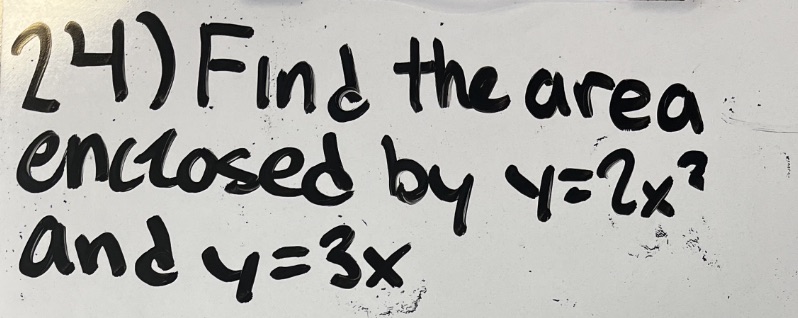 24) Find the area
enclosed by y=2x²
and y=3x